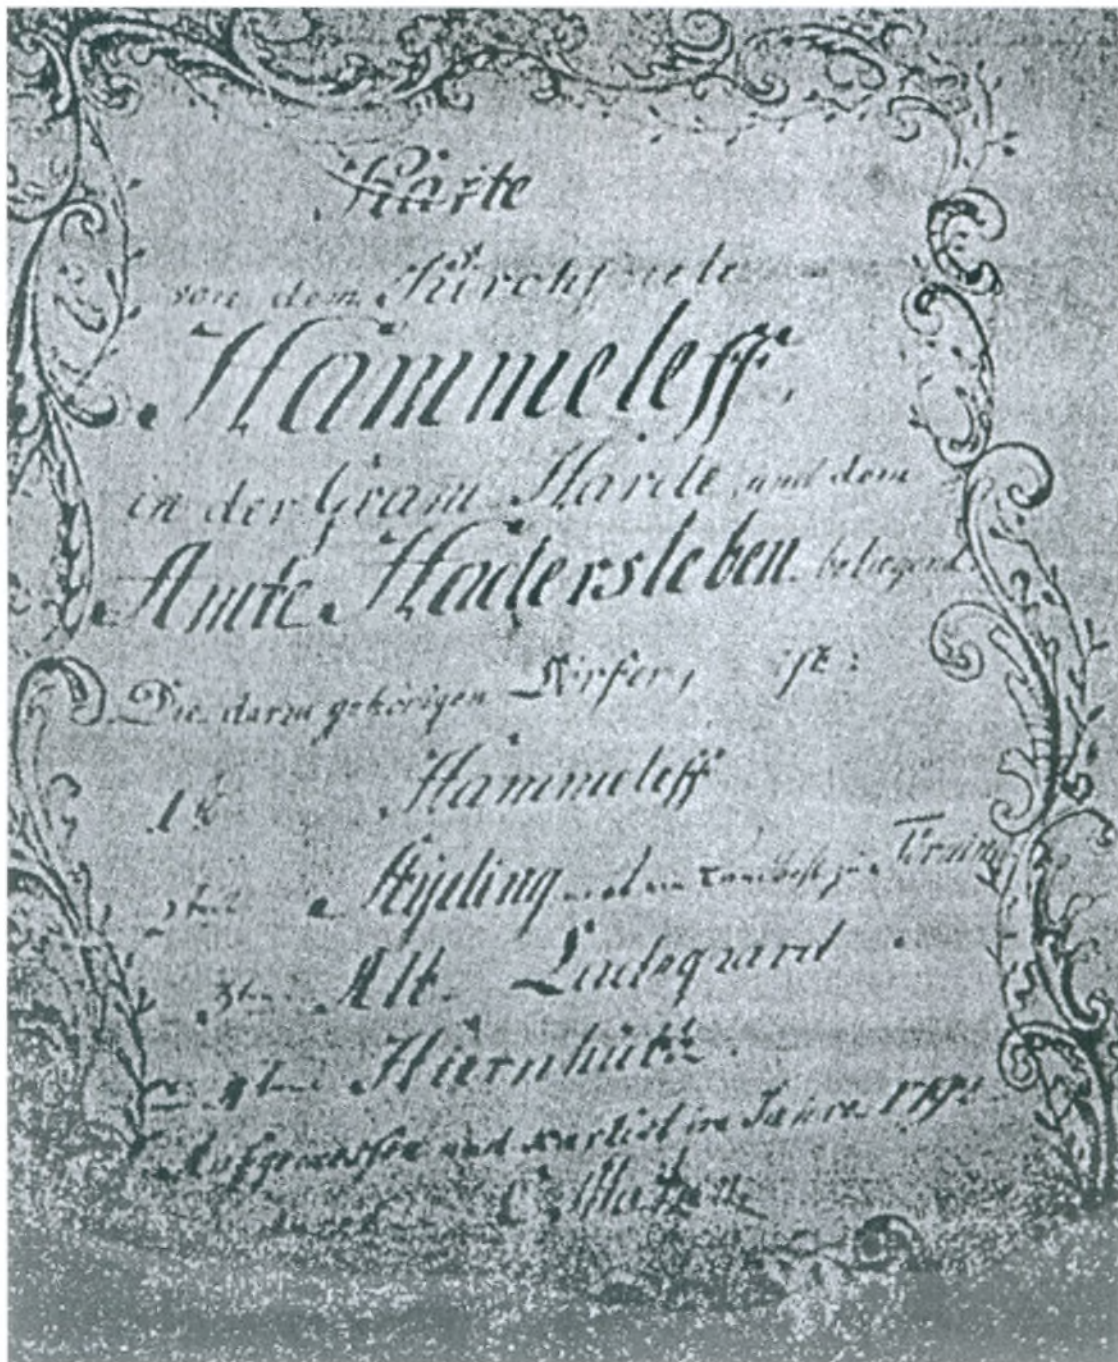 Karte
von dem Kirchspiele
Hammeleff,
in der Gram Harde und dem
Amte Hadersleben belegend.
Die darzu gehörigen Dörfer, ist:
1te Hammeleff
2ten Styding
3ten Alt Ladegaard
4ten Hiernhütt
Aufgemessen und cartiert im Jahre